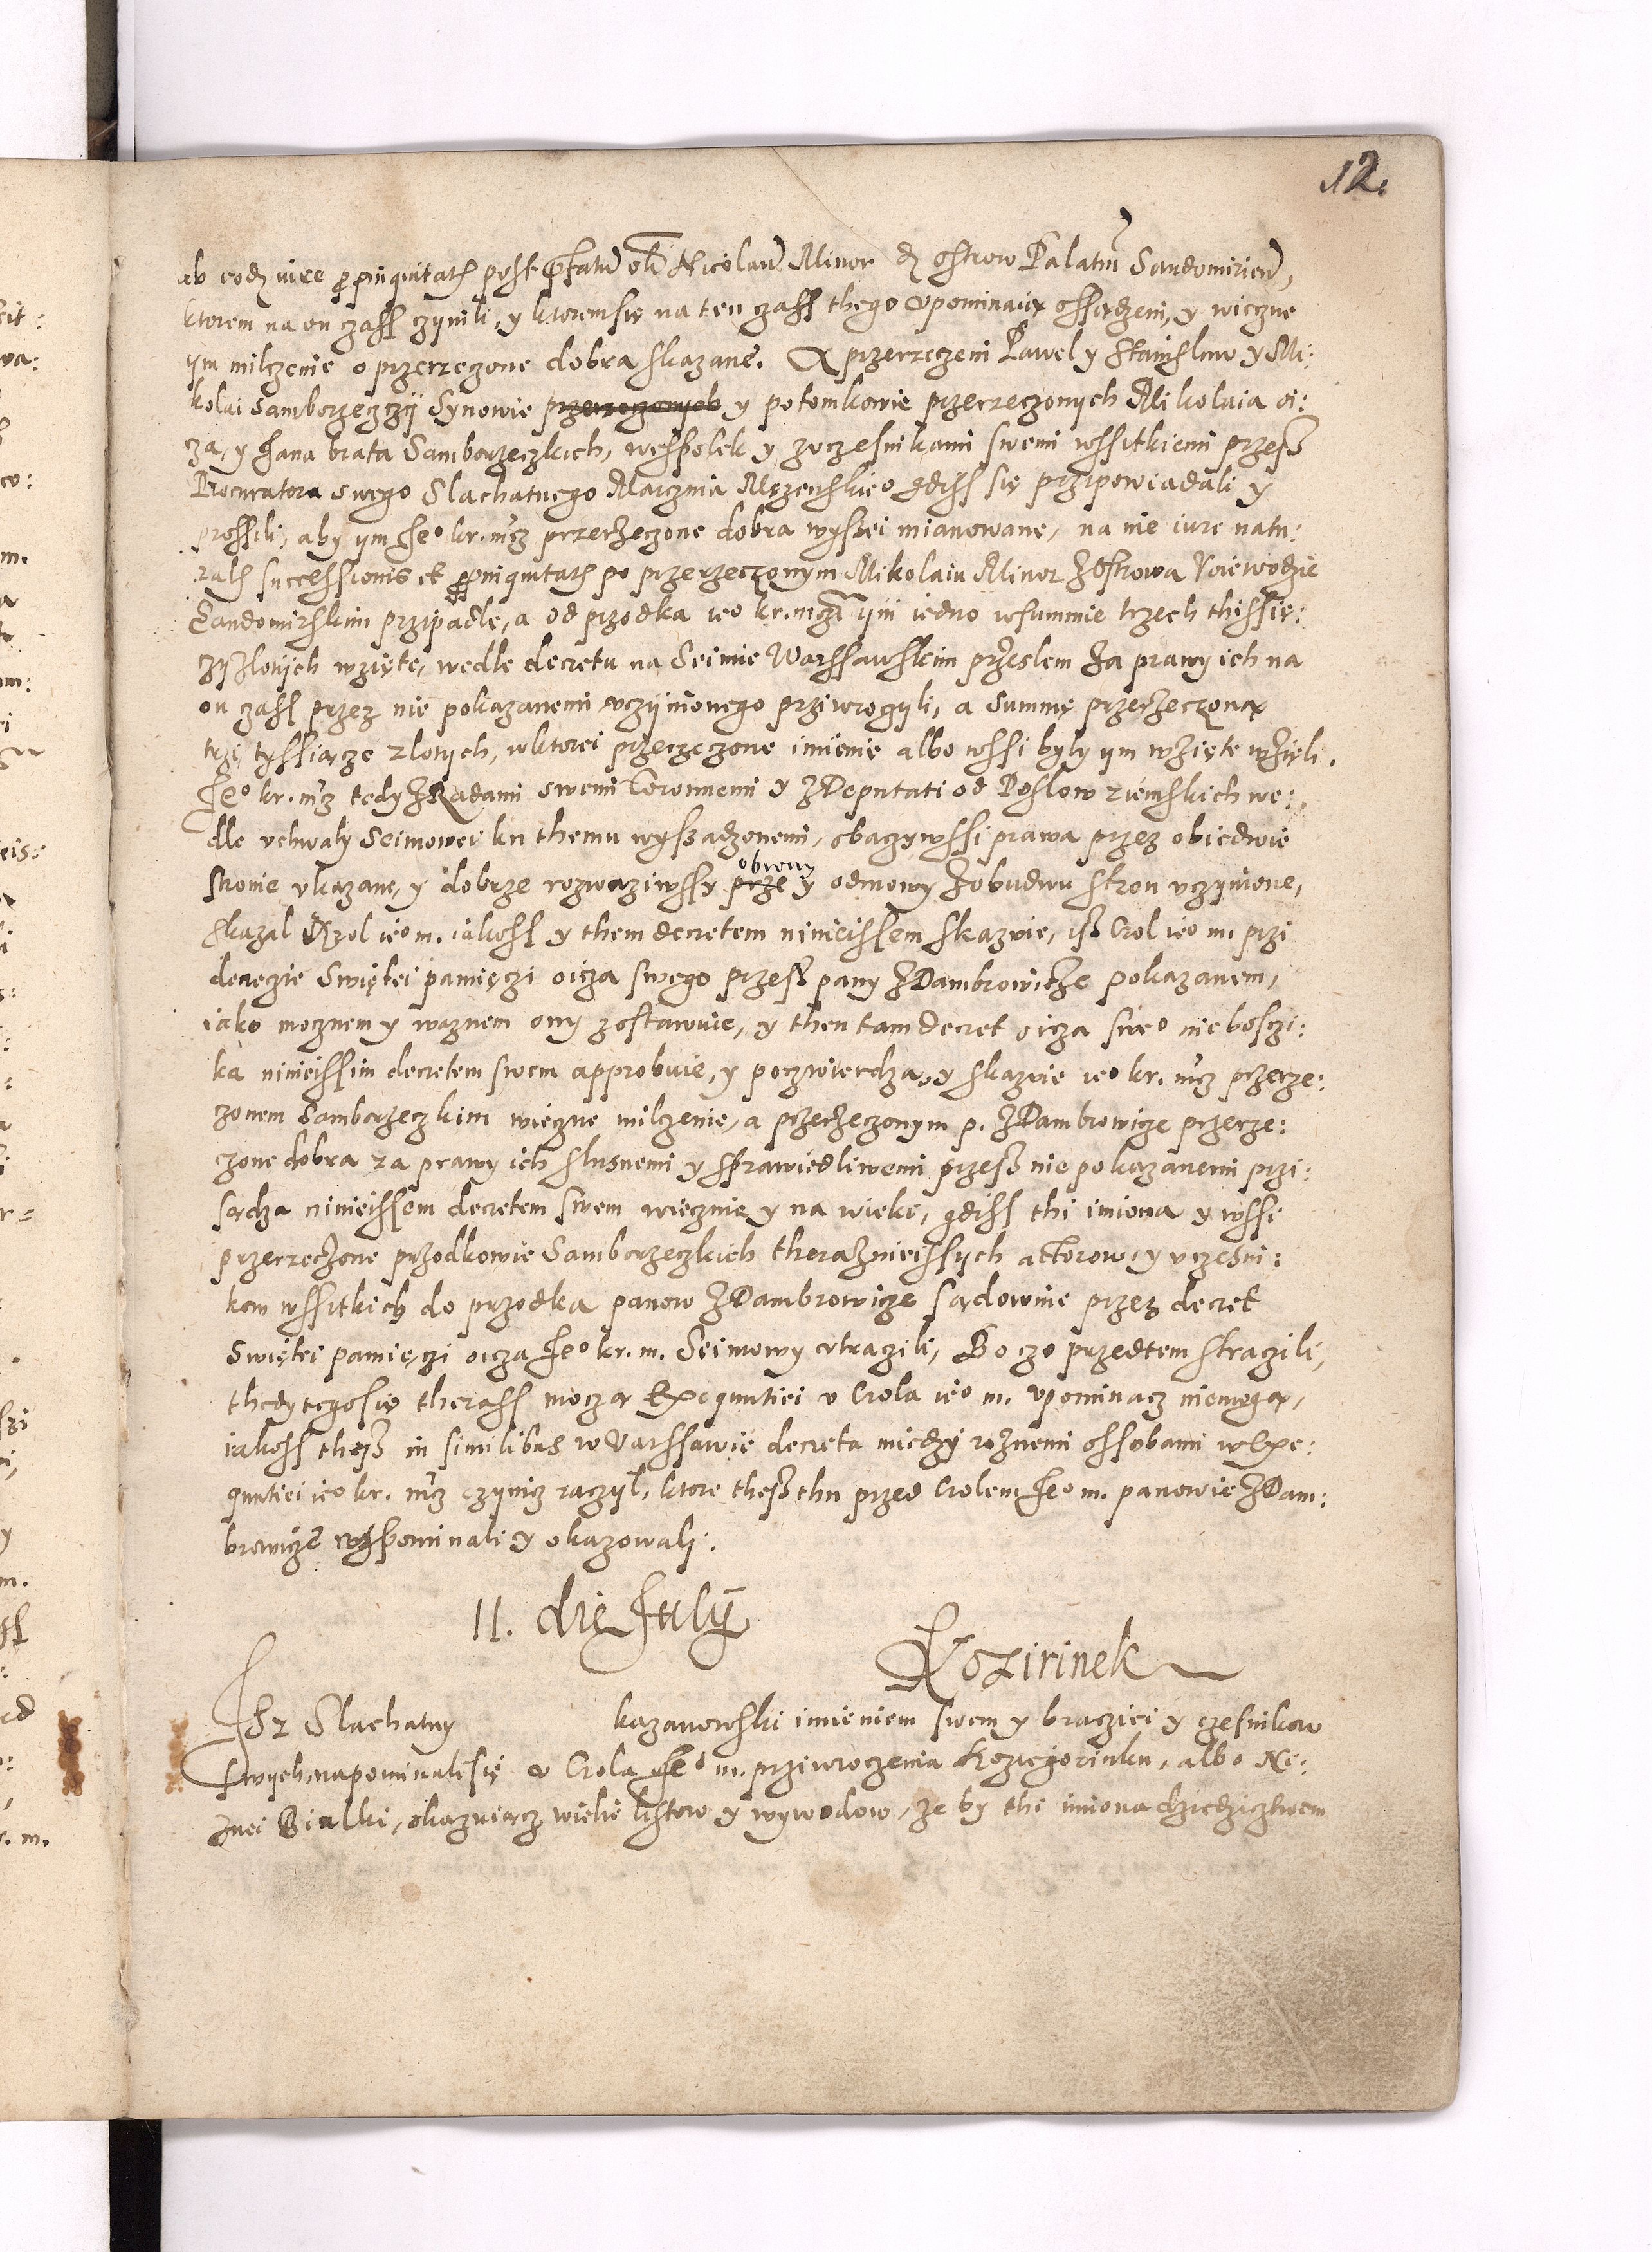 12.
ab eodem iure propinquitatis post praefatum olim Nicolaum Minor de ostrow Palatinum Sandomirien,
ktorem na on czass czynili, y ktoremsię na ten czass thego upominaiią ossądzeni, y wiczne
ym milczenie o przerzeczone dobra skazane. A przerzeczeni Pawel y Stanislaw y Mi:
kolai Samborzeczczÿ Synowie przerzeczonych y potomkowie przerzeczonych Mikolaia oi:
cza, y Jana brata Samborzeczkich, wespolek y zuczesnikami swemi wssitkiemi przesz
Procuratora swego Slachatnego Marczina Męzenskie° gdiss się przipowiadali y
prossili, aby ym Je° kr. mcz przerzeczone dobra wyszei mianowane, na nie iure natu:
ralis successionis et propinquitatis po przerzeczonym Mikolaiu Minor Zostrowa Voiewodzie
Sandomirskim przipadle, a od przodka ie° kr. mczi ÿm iedno wsummie trzech thissię:
czÿ Zlotych wzięte, wedle decretu na Seimie Warssawskim przeslem Za prawy ich na
on czass przez nie pokazanemi uczynionego prziwroczyli, a Summę przerzeczoną
trzi tyssiącze zlotych, wktorei przerzeczone imienie albo wssi byly ym wzięte wzięli.
Je° kr. mcz tedy Z Radami swemi Coronnemi y Z Deputati od Poslow ziemskich we:
dle uchwaly Seimowei ku themu wyszadzonemi, obaczywssi prawa przez obiedwie
stronie ukazane, y dobrze rozwaziwssy prze obrony y odmowy Zobudwu stron uczynione,
skazal Krol ie° m. iakoss y them decretem ninieissem skazuie, isz Crol ie° m. przi
decrecie Swiętei pamięczi oicza swego przesz pany Z Dambrowicze pokazanem,
iako mocznem y waznem ony zostawuie, y then tam decret oicza swe° nieboszczi:
ka ninieissim decretem swem approbuie, y poczwierdza, y skazuie ie° kr. mcz przerze:
czonem Samborzeczkim wieczne milczenie, a przerzeczonym p. Z Dambrowicze przerze:
czone dobra za prawy ich slusnemi y sprawiedliwemi przesz nie pokazanemi przi:
sądza ninieissem decretem swem wiecznie y na wieki, gdiss thi imiona y wssi
przerzeczone przodkowie Samborzeczkich therazniessych actorow y uczesni:
kow wssitkich do przodka panow Z Dambrowicze sądownie przez decret
Swiętei pamięczi oicza Je° kr. m. Seimowy utraczili, Bo czo przedtem straczili,
thedy tegosię therass moczą Exequutiei u Crola ie° m. upominacz niemogą,
iakoss thesz in similibus w Varssawie decreta miedzy roznemi ossobami w Exe:
quutiei ie° kr. mcz czynicz raczyl, ktore thesz thu przed Crolem Je° m. panowie Z Dam:
browicze wspominali y okazowali.
11. die July
Kozirinek
Isz Slachatny kazanowski imieniem swem y bracziei y czesnikow
swych, napominalsię u Crola Je° m. przywroczenia Koziegorinku, albo Ne:
znei Bialki, okazuiącz wiele listow y wywodow, ze by thi imiona dziedzicztwem